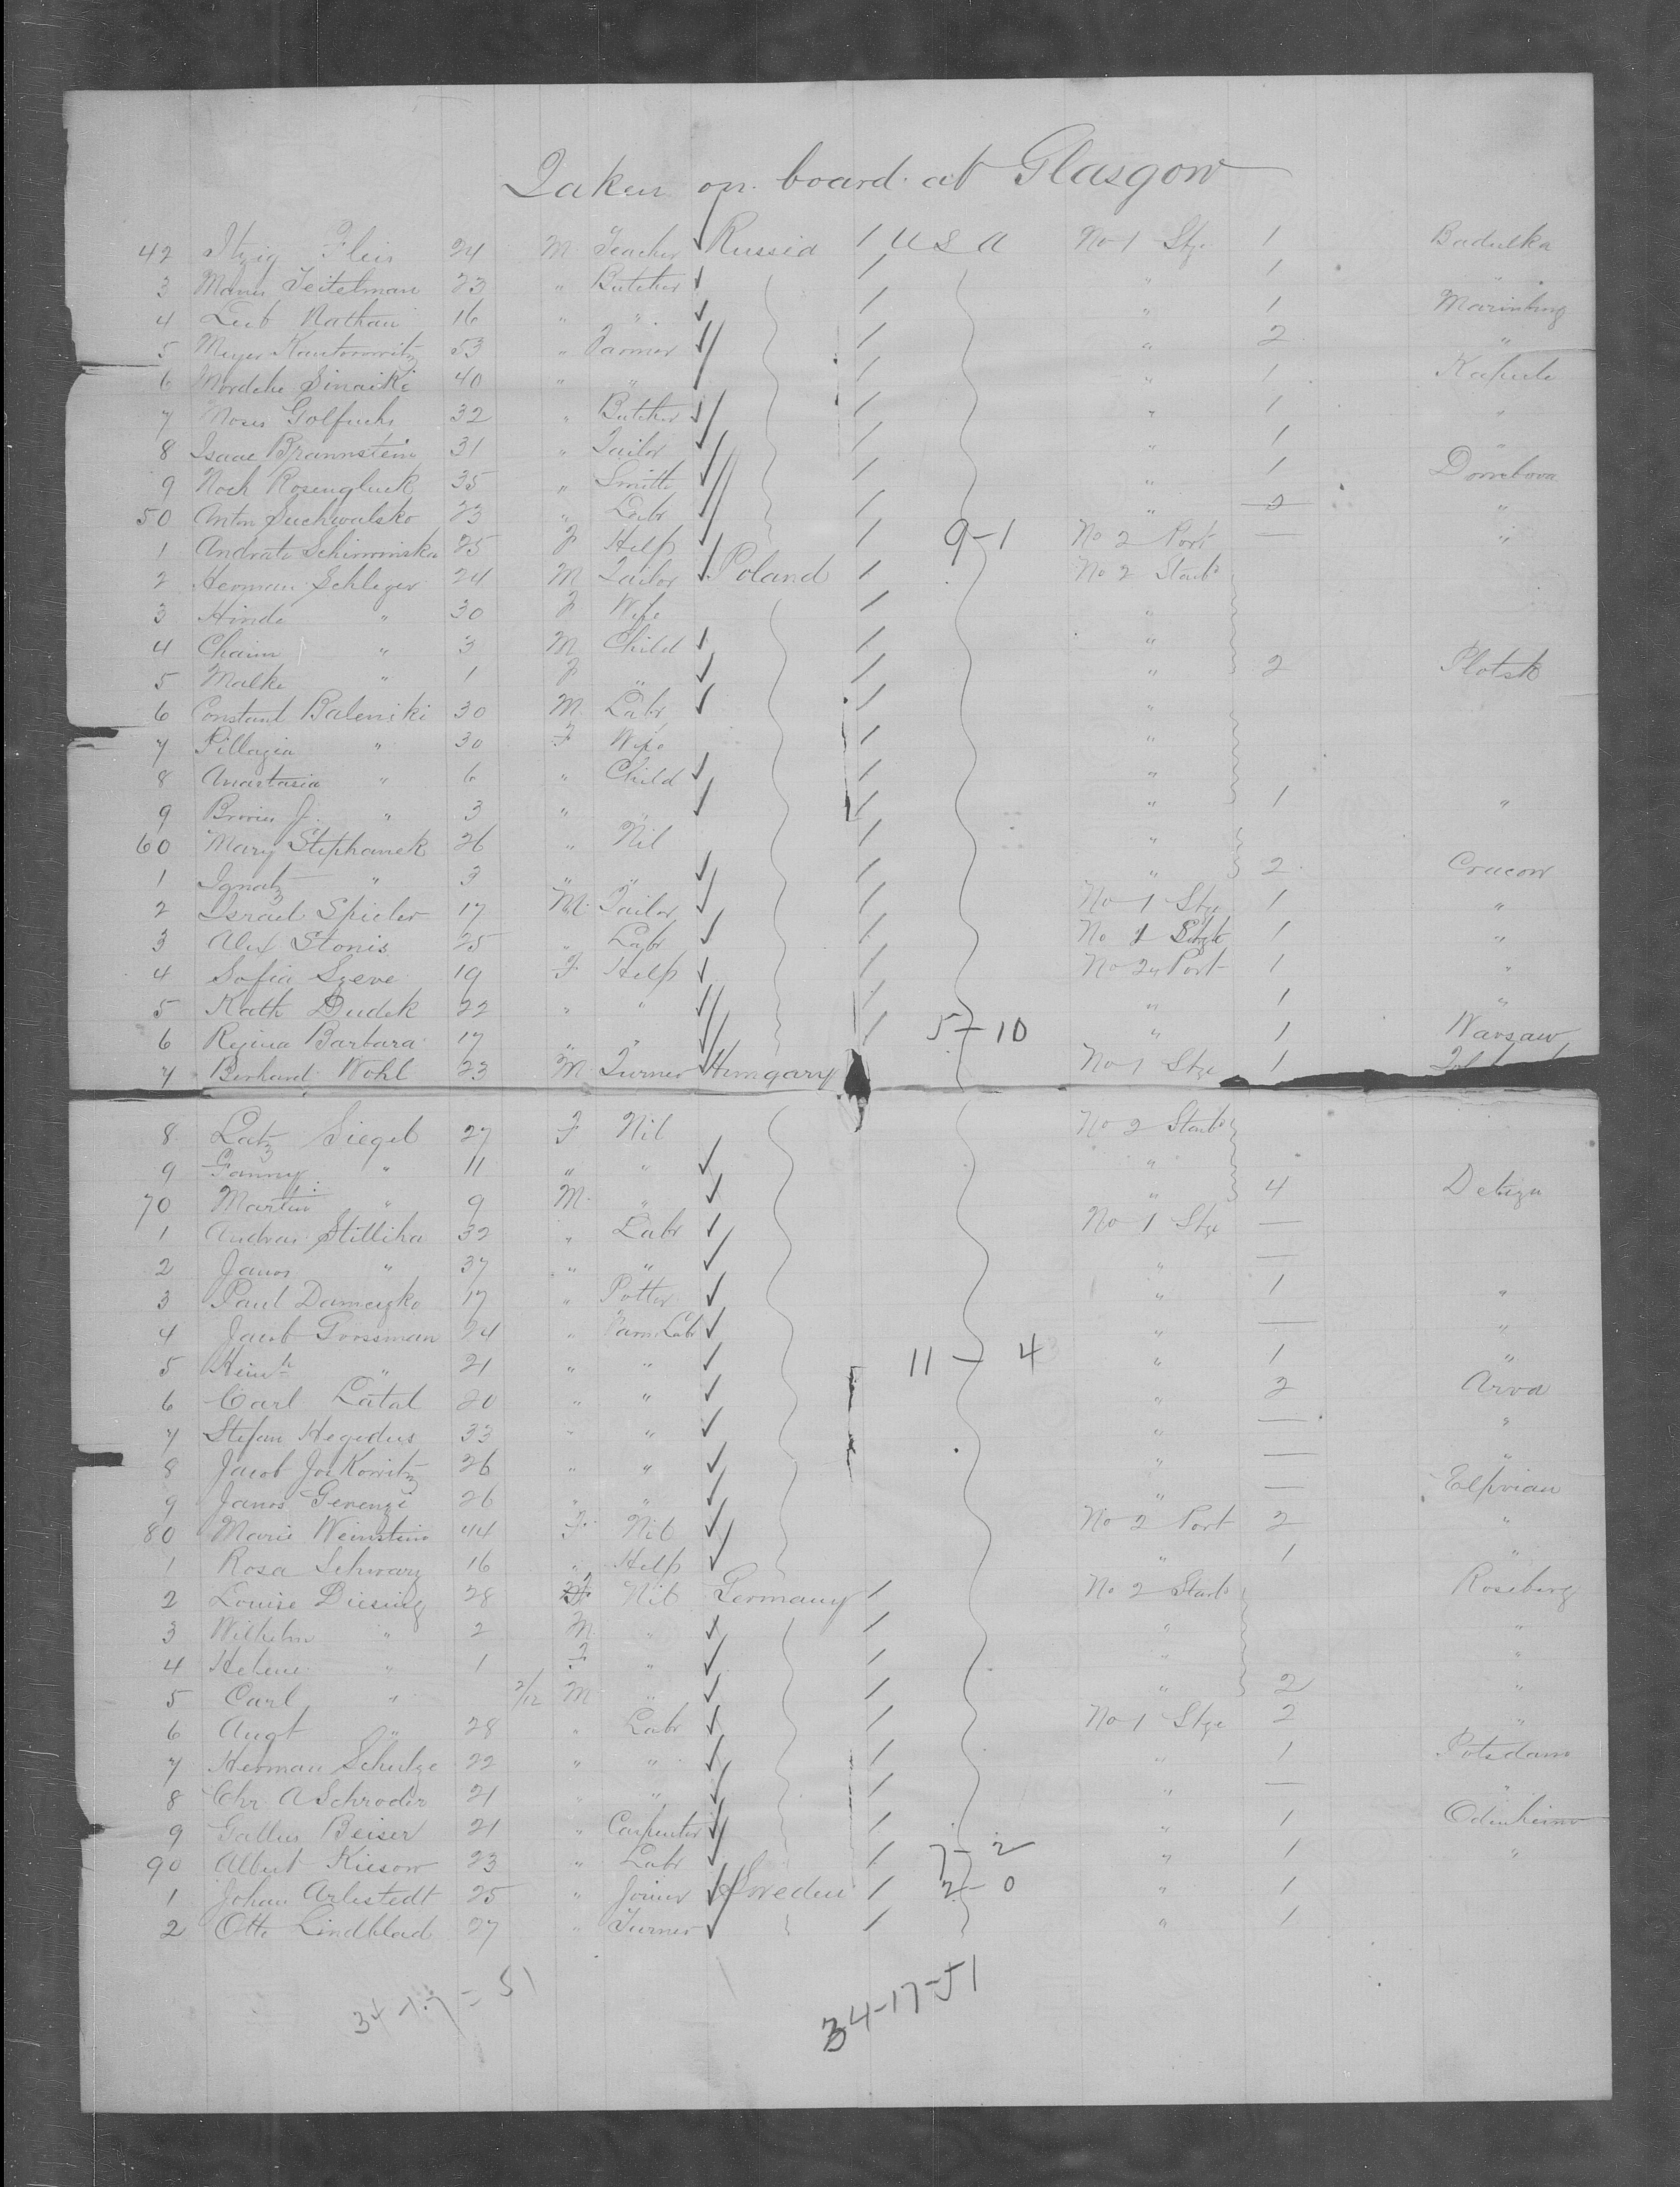 Taken on board at Glasgow
42 Itzig Fleis 24 M Teacher Russia / U S A No 1 Stge 1 Badulka
3 Manes Teitelman 23 " Butcher / " 1 "
4 Leib Nathan 16 " " / " 1 Marinburg
5 Meyer Kantorowitz 53 " Farmer / " 2 "
6 Mordche Sinaiki 40 " " / " 1 Kapule
7 Moses Golfuchs 32 " Butcher / " 1 "
8 Isaac Brannstein 31 " Tailor / " 1 "
9 Noch Rosengluck 35 " Smith / " 1 Dombova
50 Anton Suchwalsko 23 " Labr / " 2 "
1 Andrate Schirwinska 25 F Help / 9-1 No 2 Port — "
2 Herman Schleger 24 M Tailor Poland / No 2 Starb
3 Hinde " 30 F Wife / "
4 Chaim " 3 M Child / "
5 Malke " 1 F " / " 2 Plotsk
6 Constant Balenski 30 M Labr / "
7 Pillagia " 30 F Wife / "
8 Anastasia " 6 " Child / "
9 Bronis J. " 3 " " / " 1 "
60 Mary Stephanek 26 " Nil / "
1 Ignatz " 3 " " / " 2 Cracow
2 Israel Spieler 17 M Tailor / No 1 Stge 1 "
3 Alex Stonis 25 " Labr / No 1 Stge 1 "
4 Sofia Szeve 19 F Help / No 2 Port 1 "
5 Kath Dudek 22 " " / " 1 "
6 Regina Barbara 17 " " / 5-10 " 1 Warsaw
7 Berhard Wohl 23 M Turner Hungary No 1 Stge 1
8 Latz Siegel 27 F Nil No 2 Starb
9 Fanny " 11 " " "
70 Martin " 9 M " " 4 Detiza
1 Andras Stillika 32 " Labr No 1 Stge —
2 Janos " 37 " " " —
3 Paul Damcizko 17 " Potter " 1 "
4 Jacob Grossman 24 " Farm Labr " — "
5 Heinh " 21 " " 11-4 " 1 "
6 Carl Latal 20 " " " 2 Arva
7 Stefan Hegedus 33 " " " — "
8 Jacob Joskowitz 26 " " " — "
9 Janos Gerenzi 26 " " " — Elpvian
80 Marie Weinstein 44 F Nil No 2 Port 2 "
1 Rosa Schwarz 16 " Help " 1 "
2 Louise Diesing 28 F Nil Germany / No 2 Starb Roseberg
3 Wilhelm " 2 M " / " "
4 Helene " 1 F " / " "
5 Carl " 2/12 M " / " 2 "
6 Augt " 28 " Labr / No 1 Stge 2 "
7 Herman Schulze 22 " " / " 1 Potsdam
8 Chr A Schroder 21 " " / " — "
9 Gallus Beiser 21 " Carpenter / " 1 Odenheim
90 Albert Kiesow 23 " Labr / 7-2 " 1 "
1 Johan Arlestedt 25 " Joiner Sweden / 2-0 " 1
2 Otto Lindblad 27 " Turner / " 1
34-17=51
34-17-51